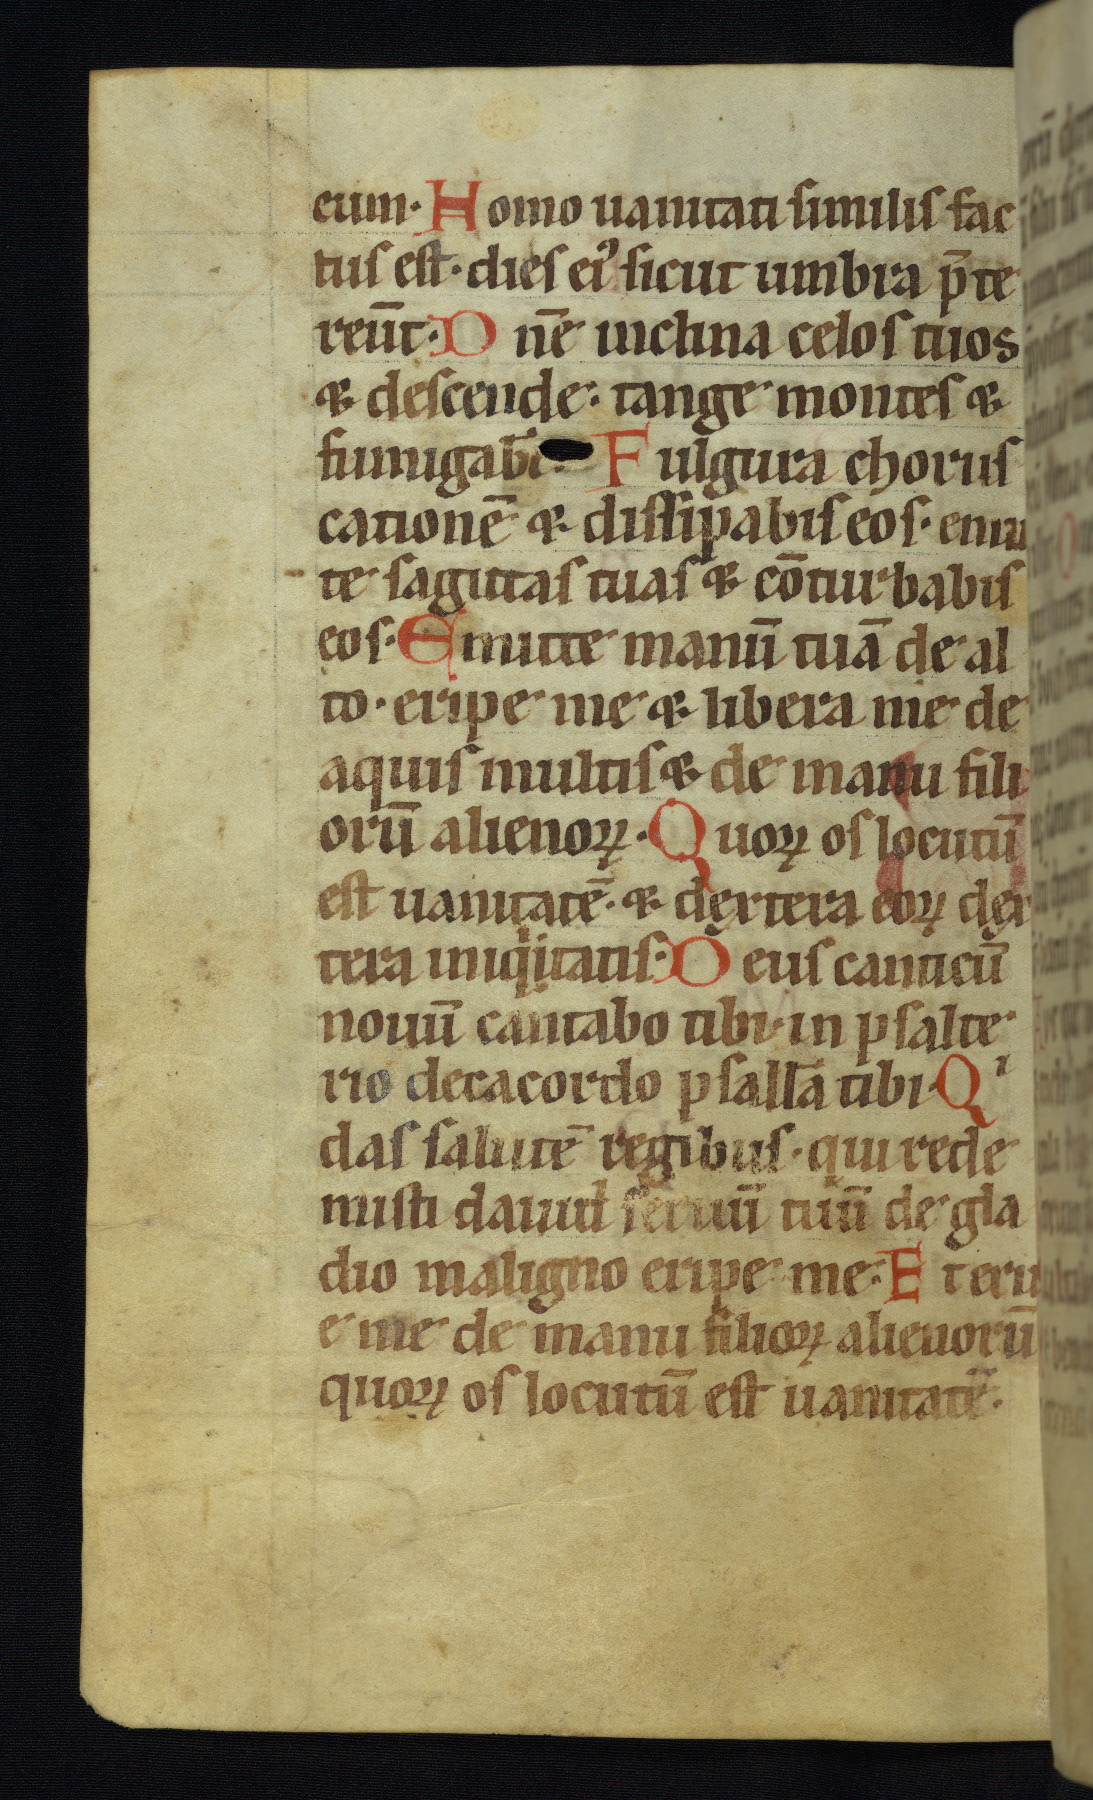 eum· Homo uanitati similis fac
tus est· dies eiꝰ sicut umbra p̄te
reūt· Dn̄e inclina celos tuos
⁊ descende· tange montes ⁊
fumigab̄t· Fulgura chorus
cationē ⁊ dissipabis eos· emit
te sagittas tuas ⁊ cōturbabis
eos· Emitte manū tuā de al
to· eripe me ⁊ libera me de
aquis multis ⁊ de manu fili
orū alienoꝝ· Quoꝝ os locutū
est uanitatē· ⁊ dextera eoꝝ dex
tera iniqͥtatis· Deus canticū
nouū cantabo tibi· in psalte
rio decacordo psallā tibi· Qͥ
das salutē regibus· qui rede
misti dauid seruū tuū de gla
dio maligno eripe me· Et eru
e me de manu filioꝝ alienorū
quoꝝ os locutū est uanitatē·